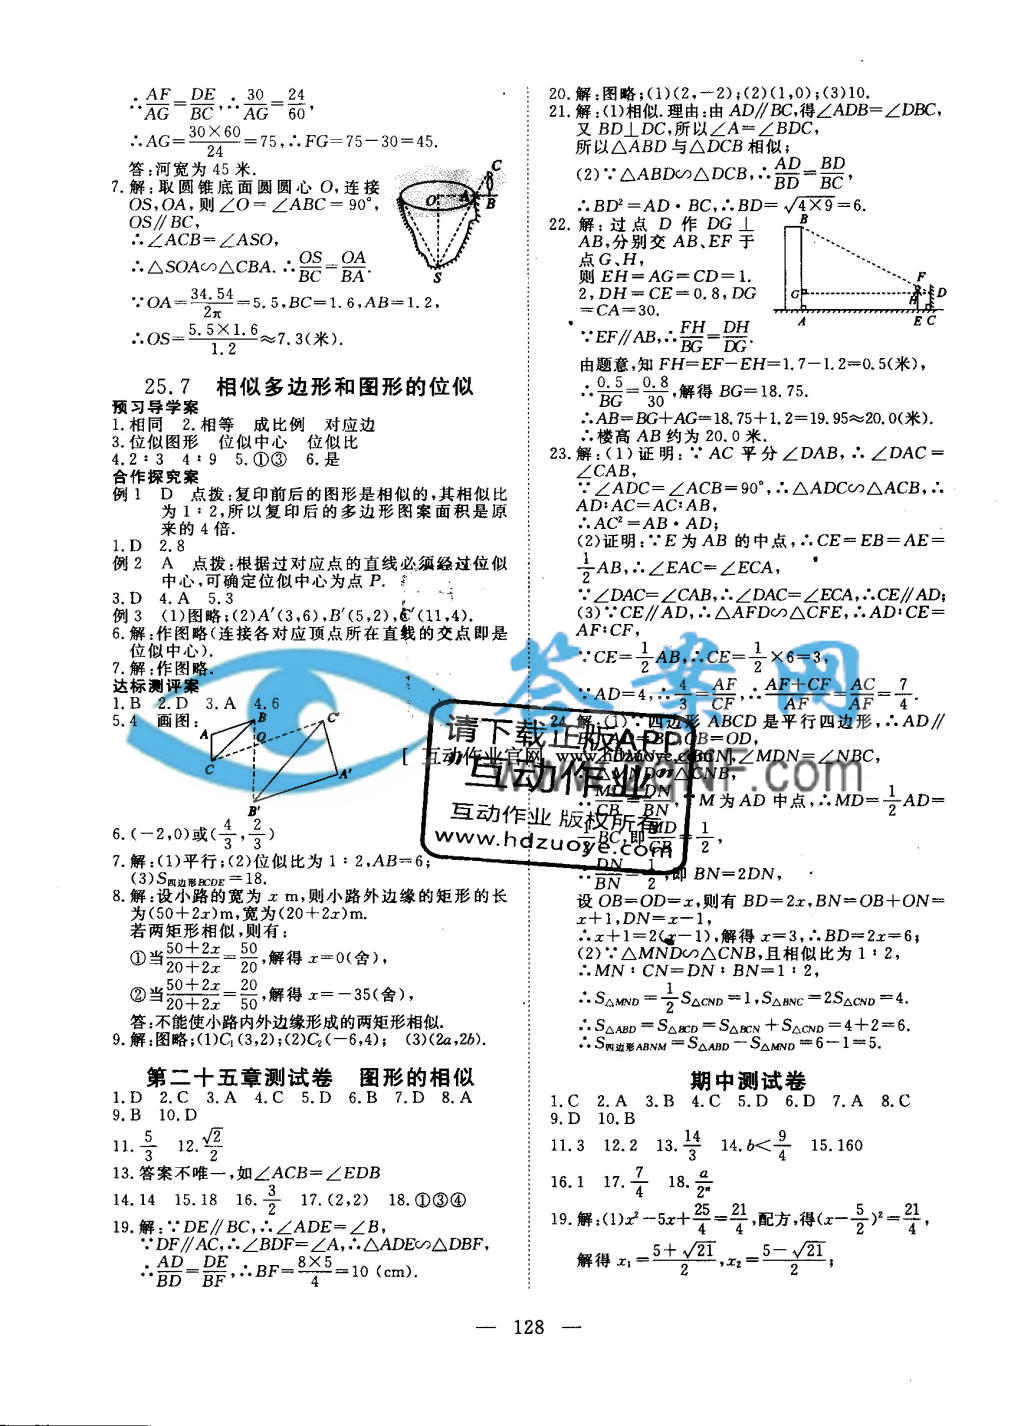 ∴AF/AG=DE/BC,∴30/AG=24/60,
∴AG=30×60/24=75,∴FG=75-30=45.
答:河宽为 45 米.
7.解:取圆锥底面圆圆心 O,连接
OS,OA,则∠O=∠ABC=90°,
OS∥BC,
∴∠ACB=∠ASO,
∴△SOA∽△CBA.∴OS/BC=OA/BA.
∵OA=34.54/2π=5.5,BC=1.6,AB=1.2,
∴OS=5.5×1.6/1.2≈7.3(米).
O A B C S
25.7 相似多边形和图形的位似
预习导学案
1.相同 2.相等 成比例 对应边
3.位似图形 位似中心 位似比
4.2∶3 4∶9 5.①③ 6.是
合作探究案
例1 D 点拨:复印前后的图形是相似的,其相似比
为1∶2,所以复印后的多边形图案面积是原
来的4倍.
1.D 2.8
例2 A 点拨:根据过对应点的直线必须经过位似
中心,可确定位似中心为点 P.
3.D 4.A 5.3
例3 (1)图略;(2)A′(3,6),B′(5,2),C′(11,4).
6.解:作图略(连接各对应顶点所在直线的交点即是
位似中心).
7.解:作图略.
达标测评案
1.B 2.D 3.A 4.6
5.4 画图:
A B C O C′ A′ B′
6.(-2,0)或(4/3,2/3)
7.解:(1)平行;(2)位似比为1∶2,AB=6;
(3)S四边形BCDE=18.
8.解:设小路的宽为 x m,则小路外边缘的矩形的长
为(50+2x)m,宽为(20+2x)m.
若两矩形相似,则有:
①当50+2x/20+2x=50/20,解得 x=0(舍),
②当50+2x/20+2x=20/50,解得 x=-35(舍),
答:不能使小路内外边缘形成的两矩形相似.
9.解:图略;(1)C₁(3,2);(2)C₂(-6,4); (3)(2a,2b).
第二十五章测试卷 图形的相似
1.D 2.C 3.A 4.C 5.D 6.B 7.D 8.A
9.B 10.D
11.5/3 12.√2/2
13.答案不唯一,如∠ACB=∠EDB
14.14 15.18 16.3/2 17.(2,2) 18.①③④
19.解:∵DE∥BC,∴∠ADE=∠B,
∵DF∥AC,∴∠BDF=∠A,∴△ADE∽△DBF,
∴AD/BD=DE/BF,∴BF=8×5/4=10 (cm).
20.解:图略;(1)(2,-2);(2)(1,0);(3)10.
21.解:(1)相似.理由:由 AD∥BC,得∠ADB=∠DBC,
又 BD⊥DC,所以∠A=∠BDC,
所以△ABD 与△DCB 相似;
(2)∵△ABD∽△DCB,∴AD/BD=BD/BC,
∴BD²=AD·BC,∴BD=√4×9=6.
22.解:过点 D 作 DG⊥
AB,分别交 AB、EF 于
点 G、H,
则 EH=AG=CD=1.
2,DH=CE=0.8,DG
=CA=30.
B F G H D A E C
∵EF∥AB,∴FH/BG=DH/DG.
由题意,知 FH=EF-EH=1.7-1.2=0.5(米),
∴0.5/BG=0.8/30,解得 BG=18.75.
∴AB=BG+AG=18.75+1.2=19.95≈20.0(米).
∴楼高 AB 约为 20.0 米.
23.解:(1)证明:∵AC 平分∠DAB,∴∠DAC=
∠CAB,
∵∠ADC=∠ACB=90°,∴△ADC∽△ACB,∴
AD∶AC=AC∶AB,
∴AC²=AB·AD;
(2)证明:∵E 为 AB 的中点,∴CE=EB=AE=
1/2AB,∴∠EAC=∠ECA,
∵∠DAC=∠CAB,∴∠DAC=∠ECA,∴CE∥AD;
(3)∵CE∥AD,∴△AFD∽△CFE,∴AD∶CE=
AF∶CF,
∵CE=1/2AB,∴CE=1/2×6=3,
∵AD=4,∴4/3=AF/CF,∴AF+CF/AF=AC/AF=7/4.
24.解:(1)∵四边形 ABCD 是平行四边形,∴AD∥
BC,AD=BC,OB=OD,
∠MDN=∠NBC,
∴△MND∽△CNB,
∴MD/CB=DN/BN,∵M 为 AD 中点,∴MD=1/2AD=
1/2BC,即MD/CB=1/2,
∴DN/BN=1/2,即 BN=2DN,
设 OB=OD=x,则有 BD=2x,BN=OB+ON=
x+1,DN=x-1,
∴x+1=2(x-1),解得 x=3,∴BD=2x=6;
(2)∵△MND∽△CNB,且相似比为1∶2,
∴MN∶CN=DN∶BN=1∶2,
∴S△MND=1/2S△CND=1,S△BNC=2S△CND=4.
∴S△ABD=S△BCD=S△BCN+S△CND=4+2=6.
∴S四边形ABNM=S△ABD-S△MND=6-1=5.
期中测试卷
1.C 2.A 3.B 4.C 5.D 6.D 7.A 8.C
9.D 10.B
11.3 12.2 13.14/3 14.b<9/4 15.160
16.1 17.7/4 18.a/2ⁿ
19.解:(1)x²-5x+25/4=21/4,配方,得(x-5/2)²=21/4,
解得 x₁=5+√21/2,x₂=5-√21/2;
答案网
请下载正版APP
互动作业官网
"互动作业"
互动作业 版权所有
www.hdzuoye.com
— 128 —